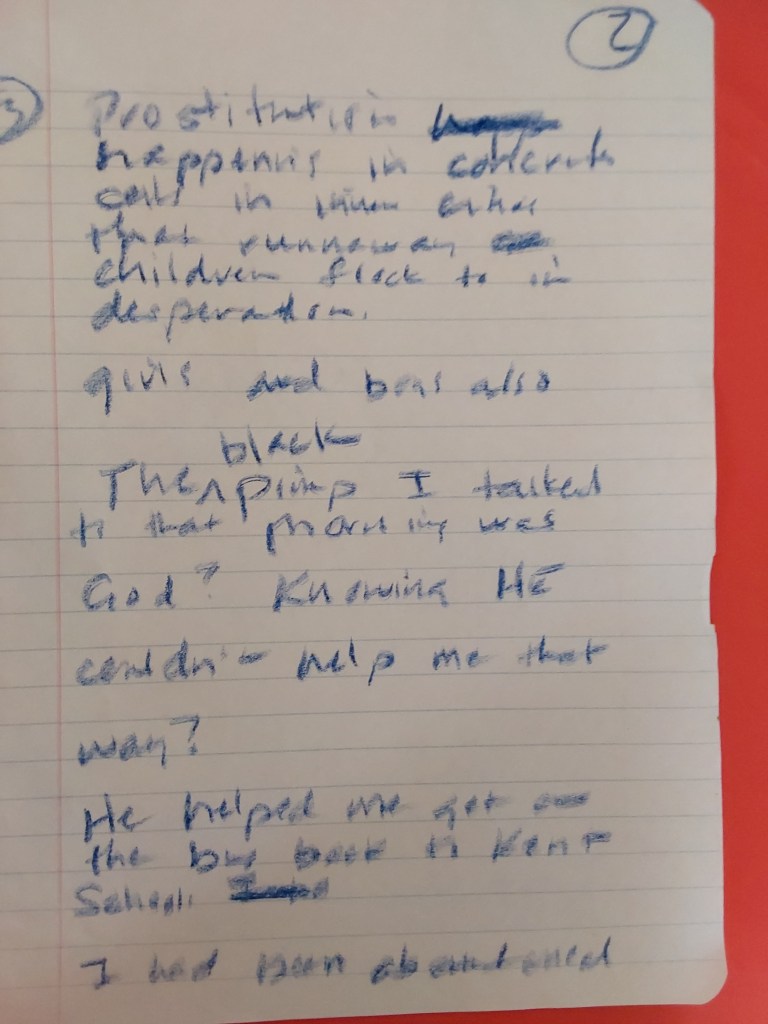 2
3
Prostitution
happens in concrete
cell in inner cities
that runnaway
children flock to in
desperation.
girls and boys also
black
The ^ pimp I talked
to that morning was
God? Knowing HE
couldn't help me that
way?
He helped me get on
the bus back to Kent
School.
I had been abandoned